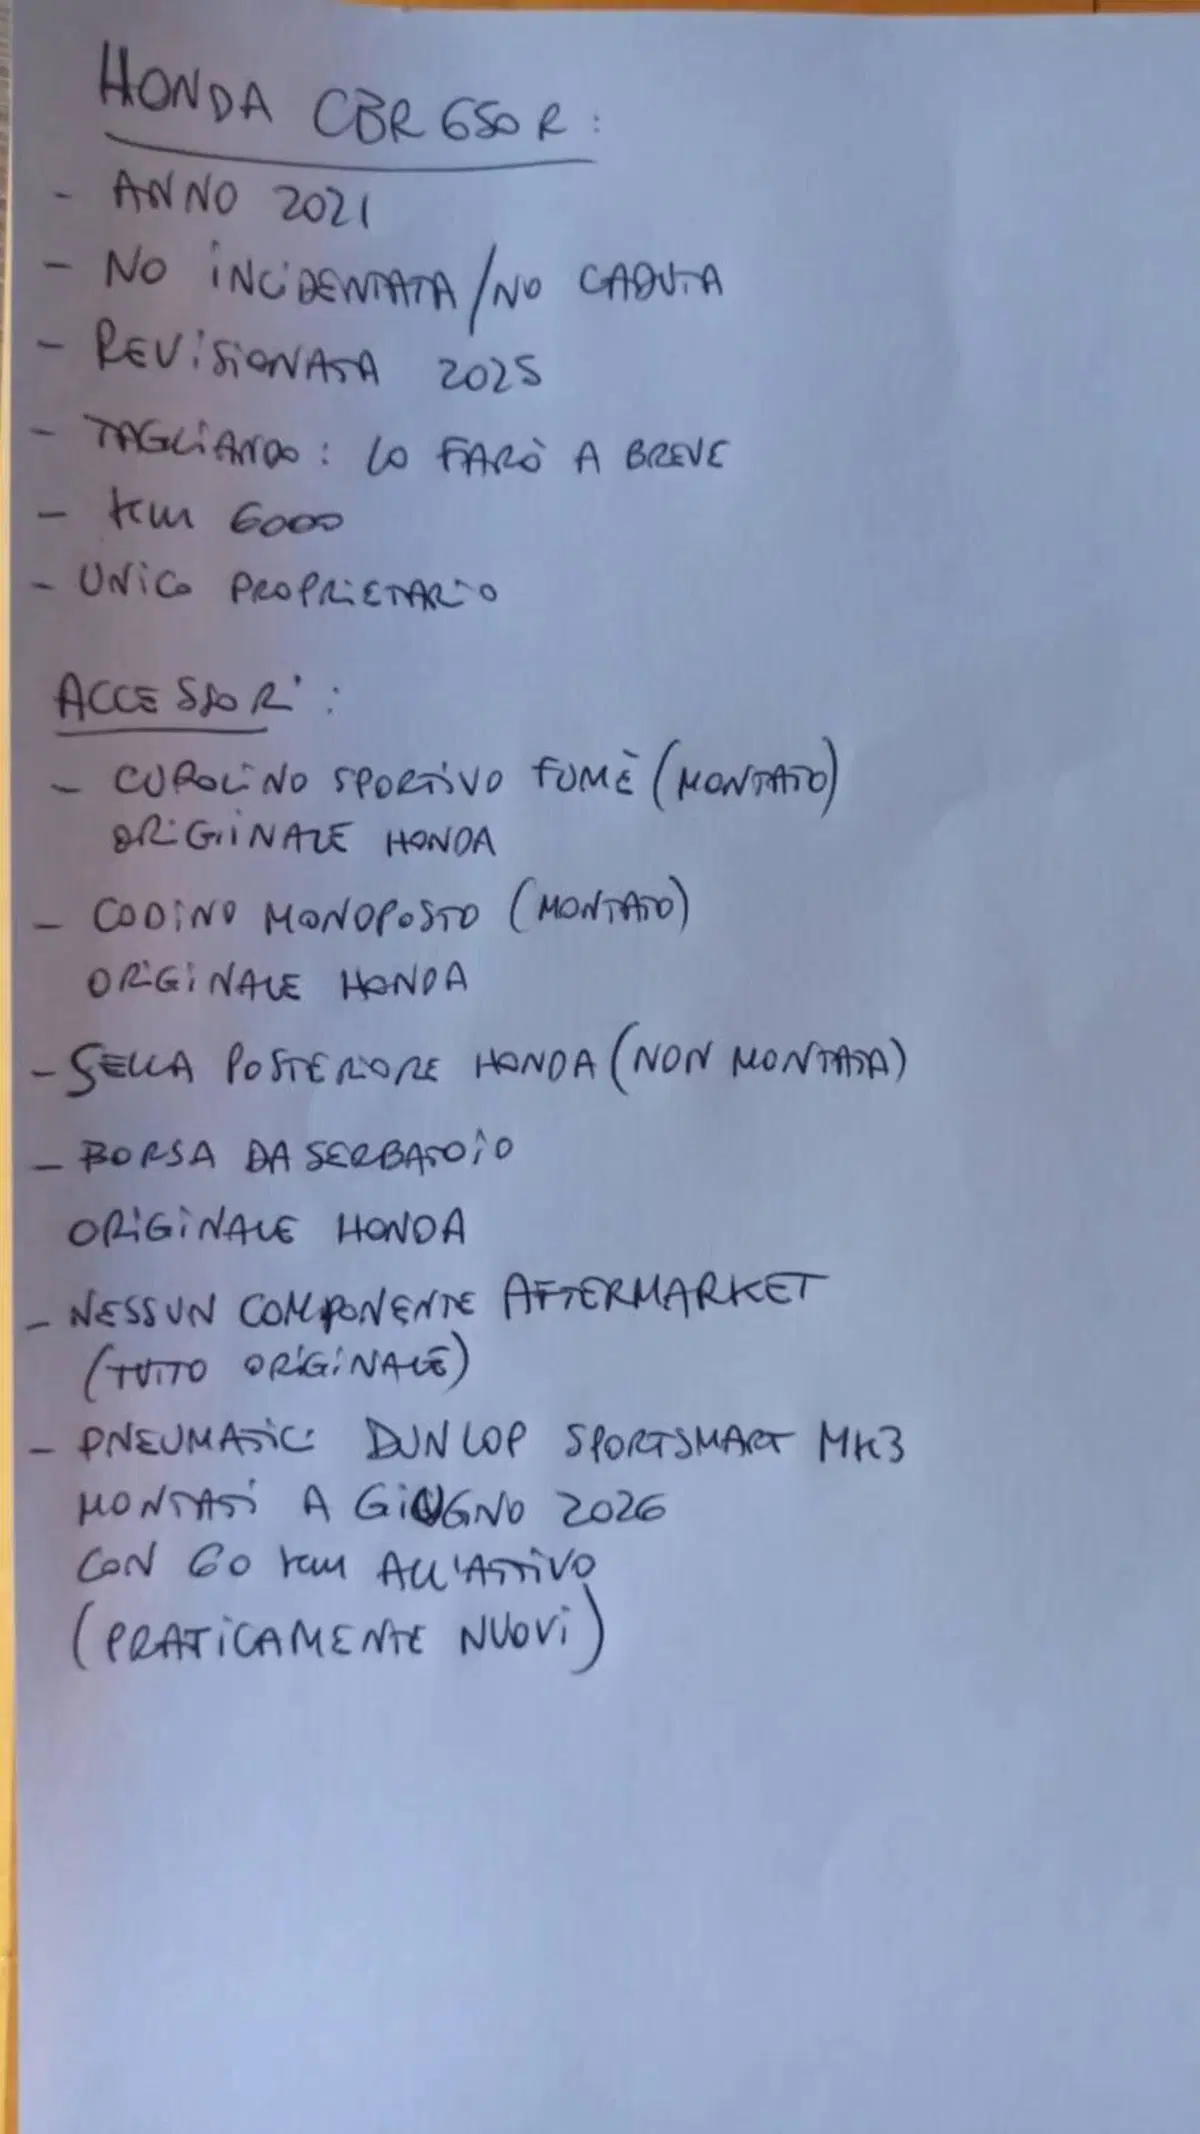 HONDA CBR 650 R:
- ANNO 2021
- NO INCIDENTATA/NO CADUTA
- REVISIONATA 2025
- TAGLIANDO: LO FARÒ A BREVE
- km 6000
- UNICO PROPRIETARIO
ACCESSORI:
- CUPOLINO SPORTIVO FUMÈ (MONTATO)
ORIGIINALE HONDA
- CODINO MONOPOSTO (MONTATO)
ORIGINALE HONDA
- SELLA POSTERIORE HONDA (NON MONTATA)
- BORSA DA SERBATOIO
ORIGINALE HONDA
- NESSUN COMPONENTE AFTERMARKET
(TUTTO ORIGINALE)
- PNEUMATICI DUNLOP SPORTSMART MK3
MONTATI A GIUGNO 2026
CON 60 km ALL'ATTIVO
(PRATICAMENTE NUOVI)